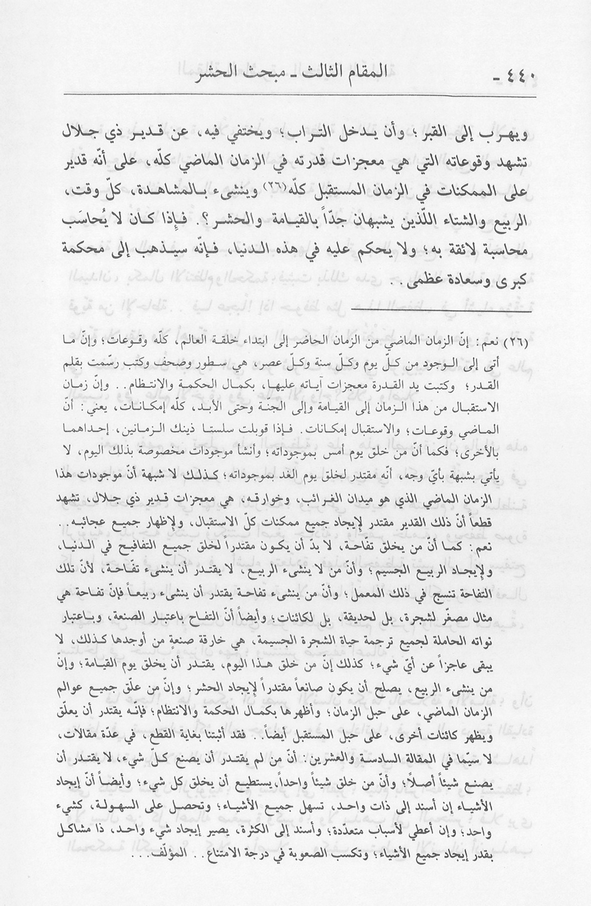 ٤٤٠ ـ المقام الثالث ـ مبحث الحشر
ويهرب إلى القبر ؛ وأن يدخل التراب ؛ ويختفي فيه، عن قدير ذي جلال
تشهد وقوعاته التي هي معجزات قدرته في الزمان الماضي كلّه، على أنّه قدير
على الممكنات في الزمان المستقبل كلّه(٢٦) وينشىء بالمشاهدة، كلّ وقت،
الربيع والشتاء اللّذين يشبهان جدّاً بالقيامة والحشر؟. فإذا كان لا يُحاسَب
محاسبة لائقة به؛ ولا يحكم عليه في هذه الدنيا، فإنّه سيذهب إلى محكمة
كبرى وسعادة عظمى . .
(٢٦) نعم: إنّ الزمان الماضي من الزمان الحاضر إلى ابتداء خلقة العالم، كلّه وقوعات؛ وإنّ ما
أتى إلى الوجود من كلّ يوم وكلّ سنة وكلّ عصر، هي سطور وصحف وكتب رسّمت بقلم
القدر؛ وكتبت يد القدرة معجزات آياته عليها، بكمال الحكمة والانتظام. . وإنّ زمان
الاستقبال من هذا الزمان إلى القيامة وإلى الجنّة وحتى الأبد، كلّه إمكانات، يعني: أنّ
الماضي وقوعات؛ والاستقبال إمكانات. فإذا قوبلت سلستا ذينك الزمانين، إحداهما
بالأخرى؛ فكما أنّ من خلق يوم أمس بموجوداته؛ وأنشأ موجودات مخصوصة بذلك اليوم، لا
يأتي بشبهة بأيّ وجه، أنّه مقتدر لخلق يوم الغد بموجوداته؛ كذلك لا شبهة أنّ موجودات هذا
الزمان الماضي الذي هو ميدان الغرائب، وخوارقه، هي معجزات قدير ذي جلال، تشهد
قطعاً أنّ ذلك القدير مقتدر لإيجاد جميع ممكنات كلّ الاستقبال، ولإظهار جميع عجائبه. .
نعم: كما أنّ من يخلق تفّاحة، لا بدّ أن يكون مقتدراً لخلق جميع التفافيح في الدنيا،
ولإيجاد الربيع الجسيم؛ وأنّ من لا ينشىء الربيع، لا يقتدر أن ينشىء تفّاحة، لأنّ تلك
التفاحة تنسج في ذلك المعمل؛ وأنّ من ينشىء تفاحة يقتدر أن ينشىء ربيعاً فإنّ تفاحة هي
مثال مصغّر لشجرة، بل لحديقة، بل لكائنات؛ وأيضاً أنّ التفاح باعتبار الصنعة، وباعتبار
نواته الحاملة لجميع ترجمة حياة الشجرة الجسيمة، هي خارقة صنعة من أوجدها كذلك، لا
يبقى عاجزاً عن أيّ شيء؛ كذلك إنّ من خلق هذا اليوم، يقتدر أن يخلق يوم القيامة؛ وإنّ
من ينشىء الربيع، يصلح أن يكون صانعاً مقتدراً لإيجاد الحشر؛ وإنّ من علّق جميع عوالم
الزمان الماضي، على حبل الزمان؛ وأظهرها بكمال الحكمة والانتظام؛ فإنّه يقتدر أن يعلّق
ويظهر كائنات أخرى، على حبل المستقبل أيضاً. . فقد أثبتنا بغاية القطع، في عدّة مقالات،
لا سيّما في المقالة السادسة والعشرين: أنّ من لم يقتدر أن يصنع كلّ شيء، لا يقتدر أن
يصنع شيئاً أصلاً؛ وأنّ من خلق شيئاً واحداً، يستطيع أن يخلق كل شيء؛ وأيضاً أنّ إيجاد
الأشياء إن أسند إلى ذات واحد، تسهل جميع الأشياء؛ وتحصل على السهولة، كشيء
واحد؛ وإن أعطي لأسباب متعدّدة؛ وأسند إلى الكثرة، يصير إيجاد شيء واحد، ذا مشاكل
بقدر إيجاد جميع الأشياء؛ وتكسب الصعوبة في درجة الامتناع. . المؤلّف. . .